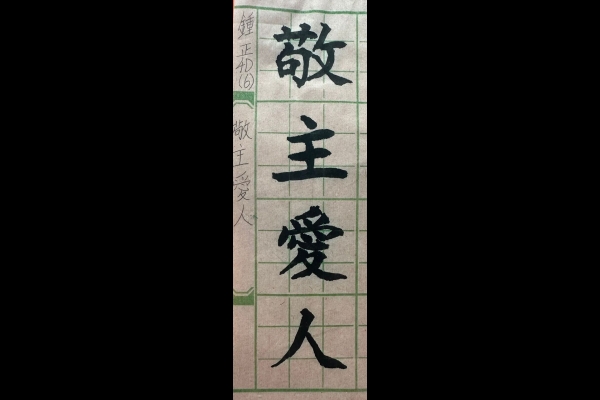 敬主愛人
鍾正4D(6)
敬主愛人